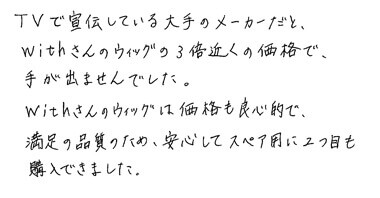 TVで宣伝している大手のメーカーだと、
withさんのウィッグの3倍近くの価格で、
手が出ませんでした。
withさんのウィッグは価格も良心的で、
満足の品質のため、安心してスペア用に2つ目も
購入できました。